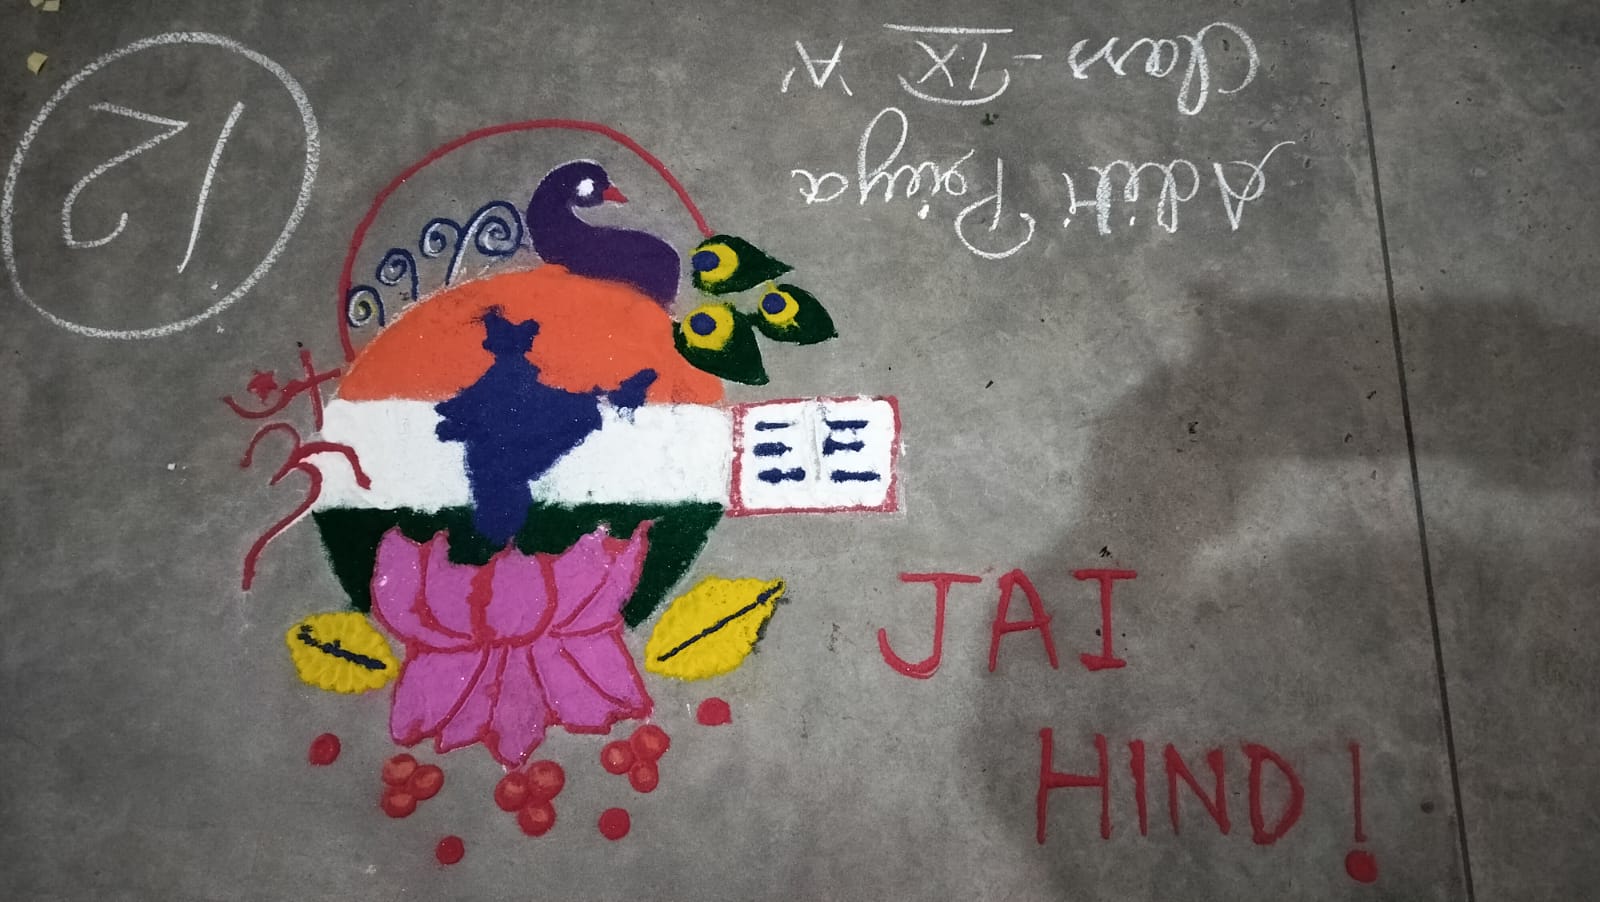 12
Aditi Priya
Class - IX 'A'
JAI
HIND!